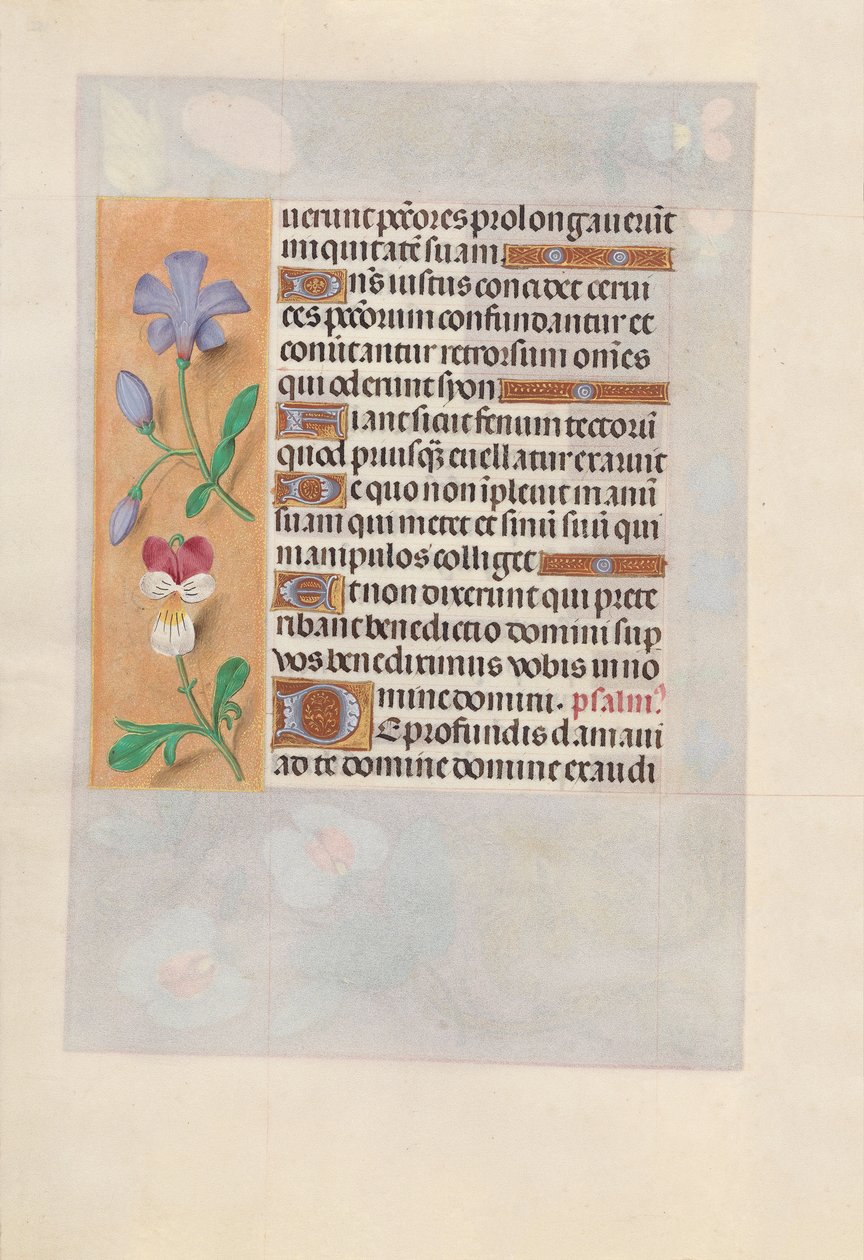 uerunt pctōres prolongauerūt
iniquitatē suam.
Dns̄ iustus concidet cerui
ces pctōrum confundantur et
conūtantur retrorsum omēs
qui oderunt syon
Fiant sicut fenum tectorū
quod priusq̄ euellatur exaruit
De quo non īpleuit manū
suam qui metet et sinū suū qui
manipulos colliget
Et non dixerunt qui prete
ribant benedictio domini sup̄
vos benediximus vobis in no
mine domini. psalmꝰ
De profundis clamaui
ad te domine domine exaudi